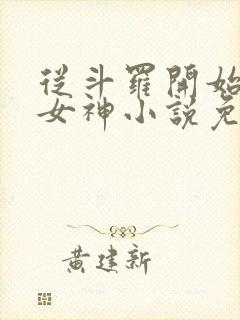 從斗羅開始
女神小說免
黃建新